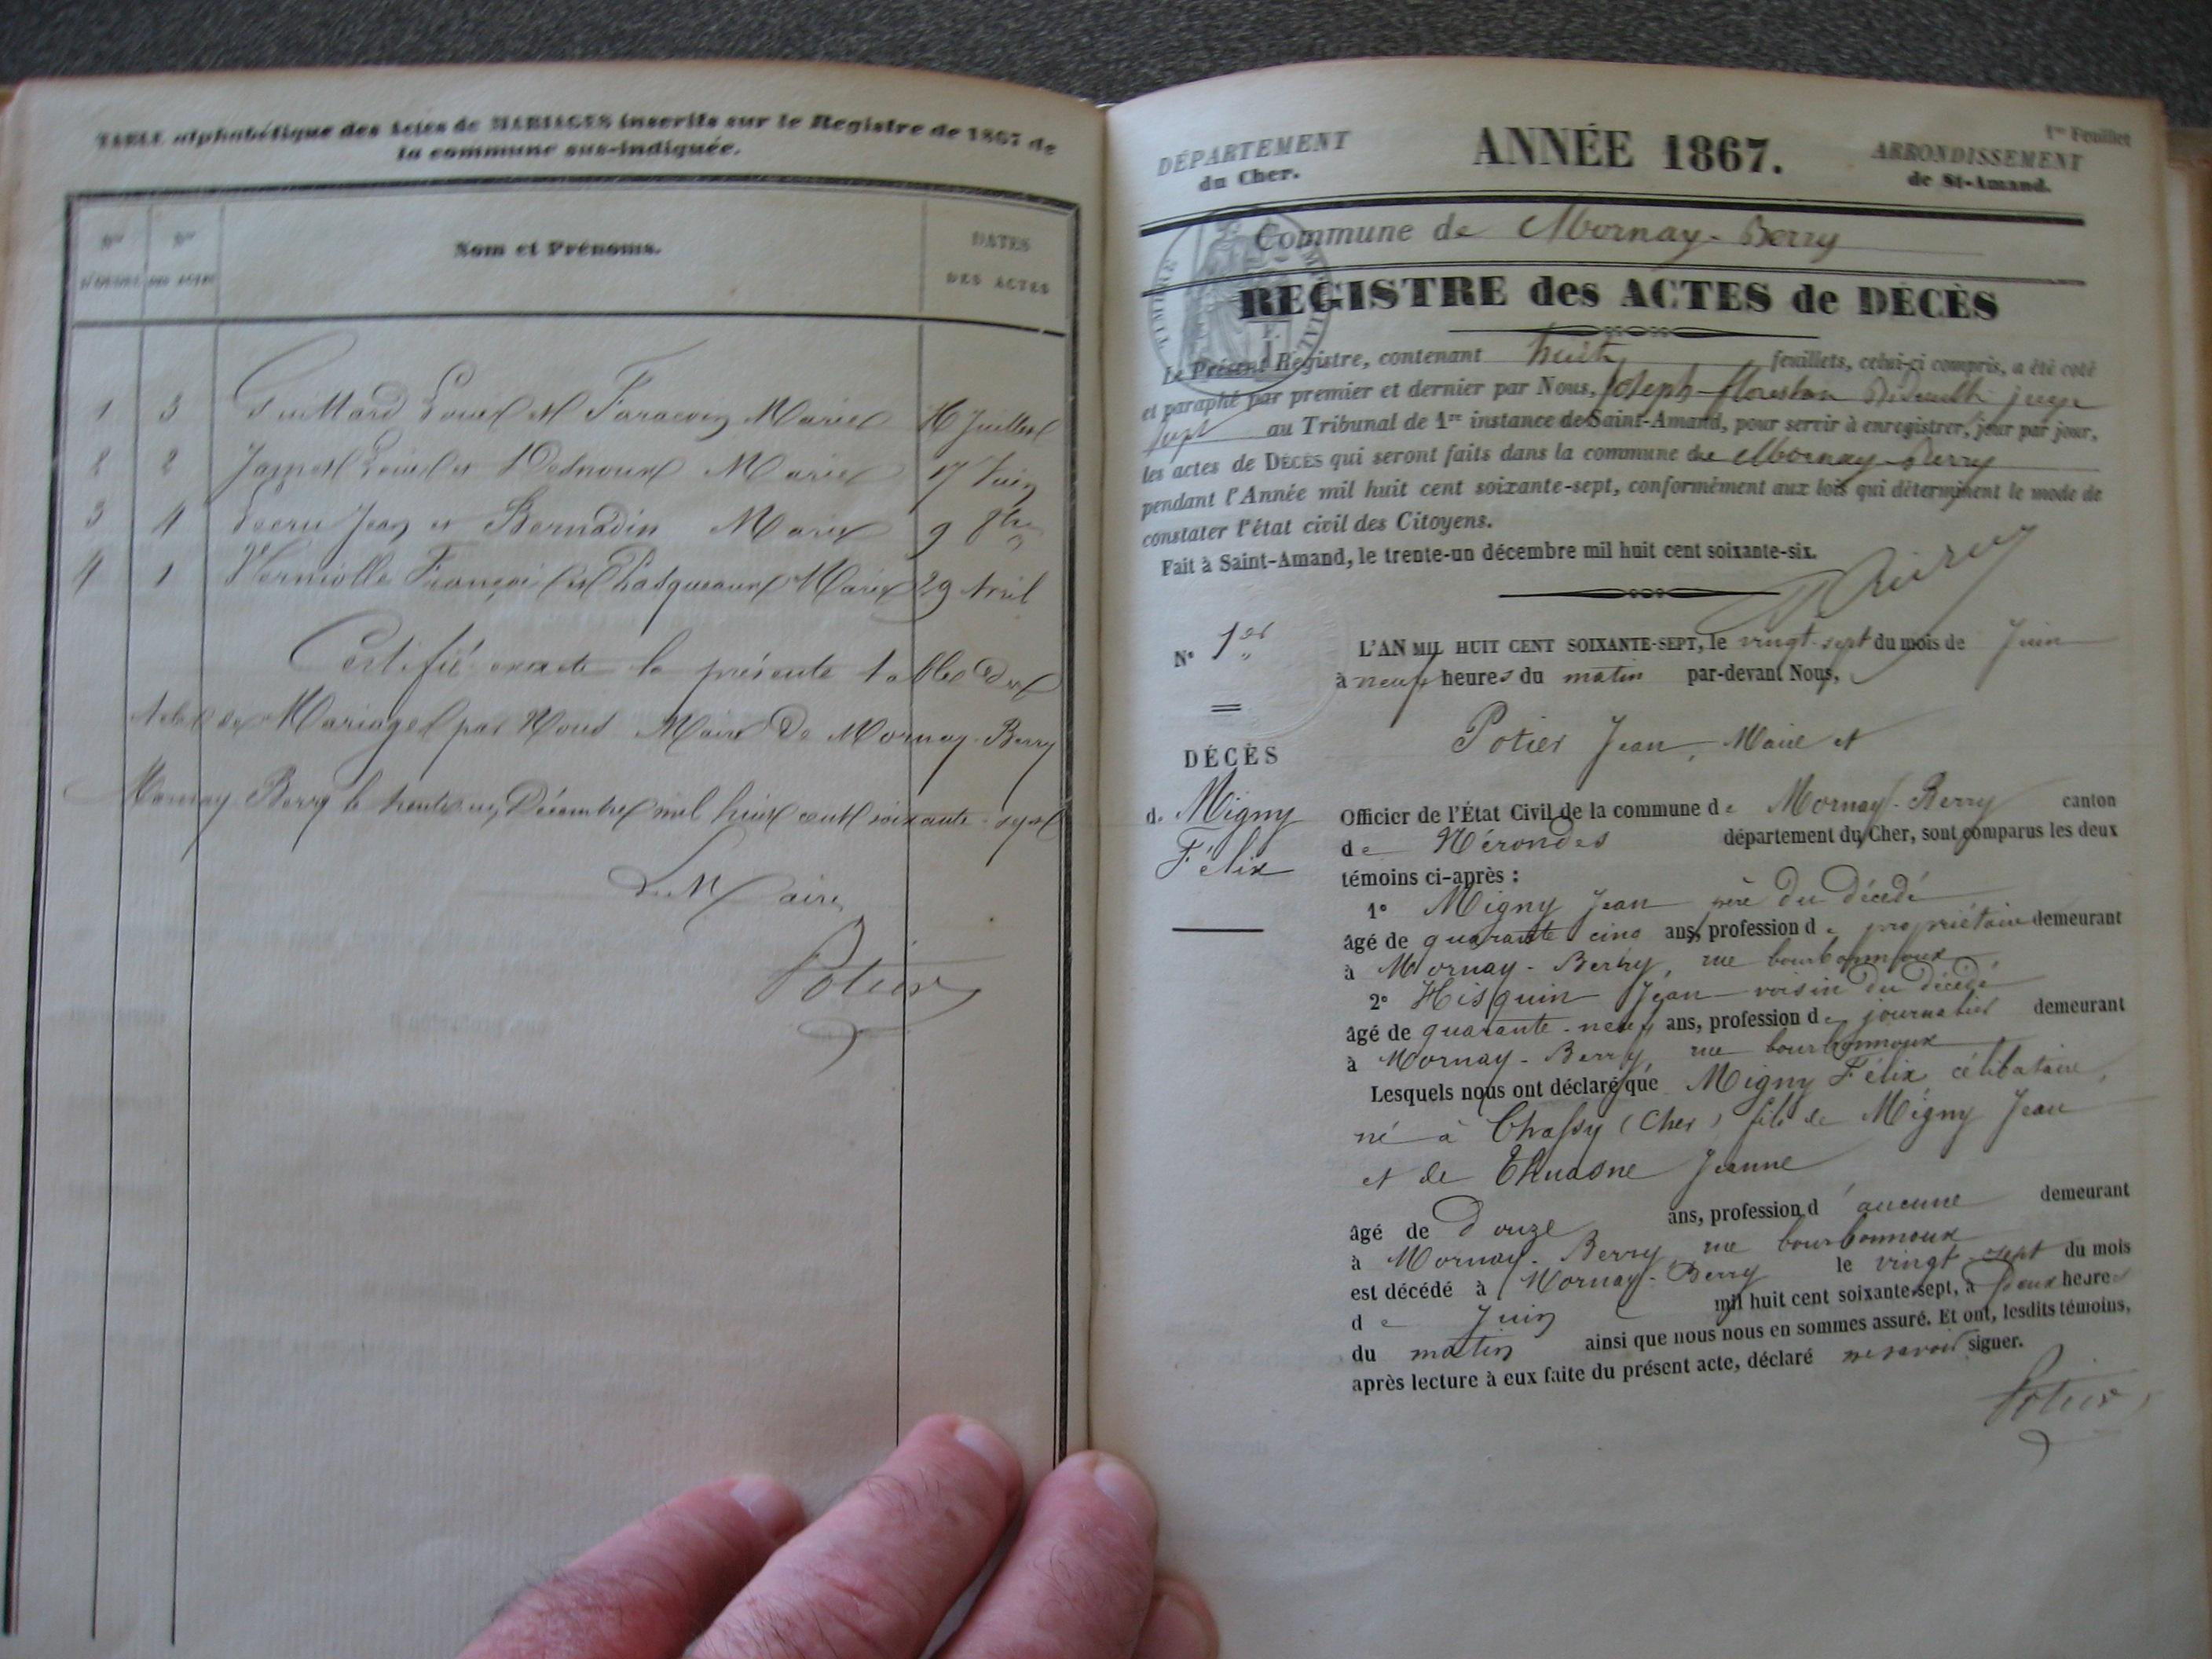 TABLE alphabétique des Actes de MARIAGES inscrits sur le Registre de 1867 de
la commune sus-indiquée.
Nos Nos Nom et Prénoms. DATES
D'ORDRE DES ACTES DES ACTES
1 3 Guittard Louis et Marie 16 Juillet
2 2 Louis et Desnoux Marie 17 Juin
3 4 Jean et Bernadin Marie 9 8bre
4 1 Verniolle François et Pasqueaux Marie 29 Avril
Certifié exacte la présente table des
Actes de Mariages par Nous Maire de Mornay-Berry
Mornay-Berry le trente un Décembre mil huit cent soixante-sept
Le Maire
Potier
1er Feuillet
DÉPARTEMENT
du Cher.
ANNÉE 1867.
ARRONDISSEMENT
de St-Amand.
Commune de Mornay-Berry
TIMBRE IMPÉRIAL
REGISTRE des ACTES de DÉCÈS
Le Présent Registre, contenant huit feuillets, celui-ci compris, a été coté
et paraphé par premier et dernier par Nous, Joseph juge
supt au Tribunal de 1re instance de Saint-Amand, pour servir à enregistrer, jour par jour,
les actes de DÉCÈS qui seront faits dans la commune de Mornay-Berry
pendant l'Année mil huit cent soixante-sept, conformément aux lois qui déterminent le mode de
constater l'état civil des Citoyens.
Fait à Saint-Amand, le trente-un décembre mil huit cent soixante-six.
N° 1er
DÉCÈS
de Migny
Félix
L'AN MIL HUIT CENT SOIXANTE-SEPT, le vingt-sept du mois de Juin
à neuf heures du matin par-devant Nous,
Potier Jean, Maire et
Officier de l'État Civil de la commune de Mornay-Berry canton
de Nérondes département du Cher, sont comparus les deux
témoins ci-après :
1° Migny Jean père du décédé
âgé de quarante cinq ans, profession de propriétaire demeurant
à Mornay-Berry, rue bourbonnoux
2° Hisquin Jean voisin du décédé
âgé de quarante-neuf ans, profession de journalier demeurant
à Mornay-Berry, rue bourbonnoux
Lesquels nous ont déclaré que Migny Félix, célibataire,
né à Chassy (Cher) fils de Migny Jean
et de Thuasne Jeanne
âgé de douze ans, profession d'aucune demeurant
à Mornay-Berry, rue bourbonnoux
est décédé à Mornay-Berry le vingt-sept du mois
de Juin mil huit cent soixante-sept, à deux heures
du matin ainsi que nous nous en sommes assuré. Et ont, lesdits témoins,
après lecture à eux faite du présent acte, déclaré ne savoir signer.
Potier